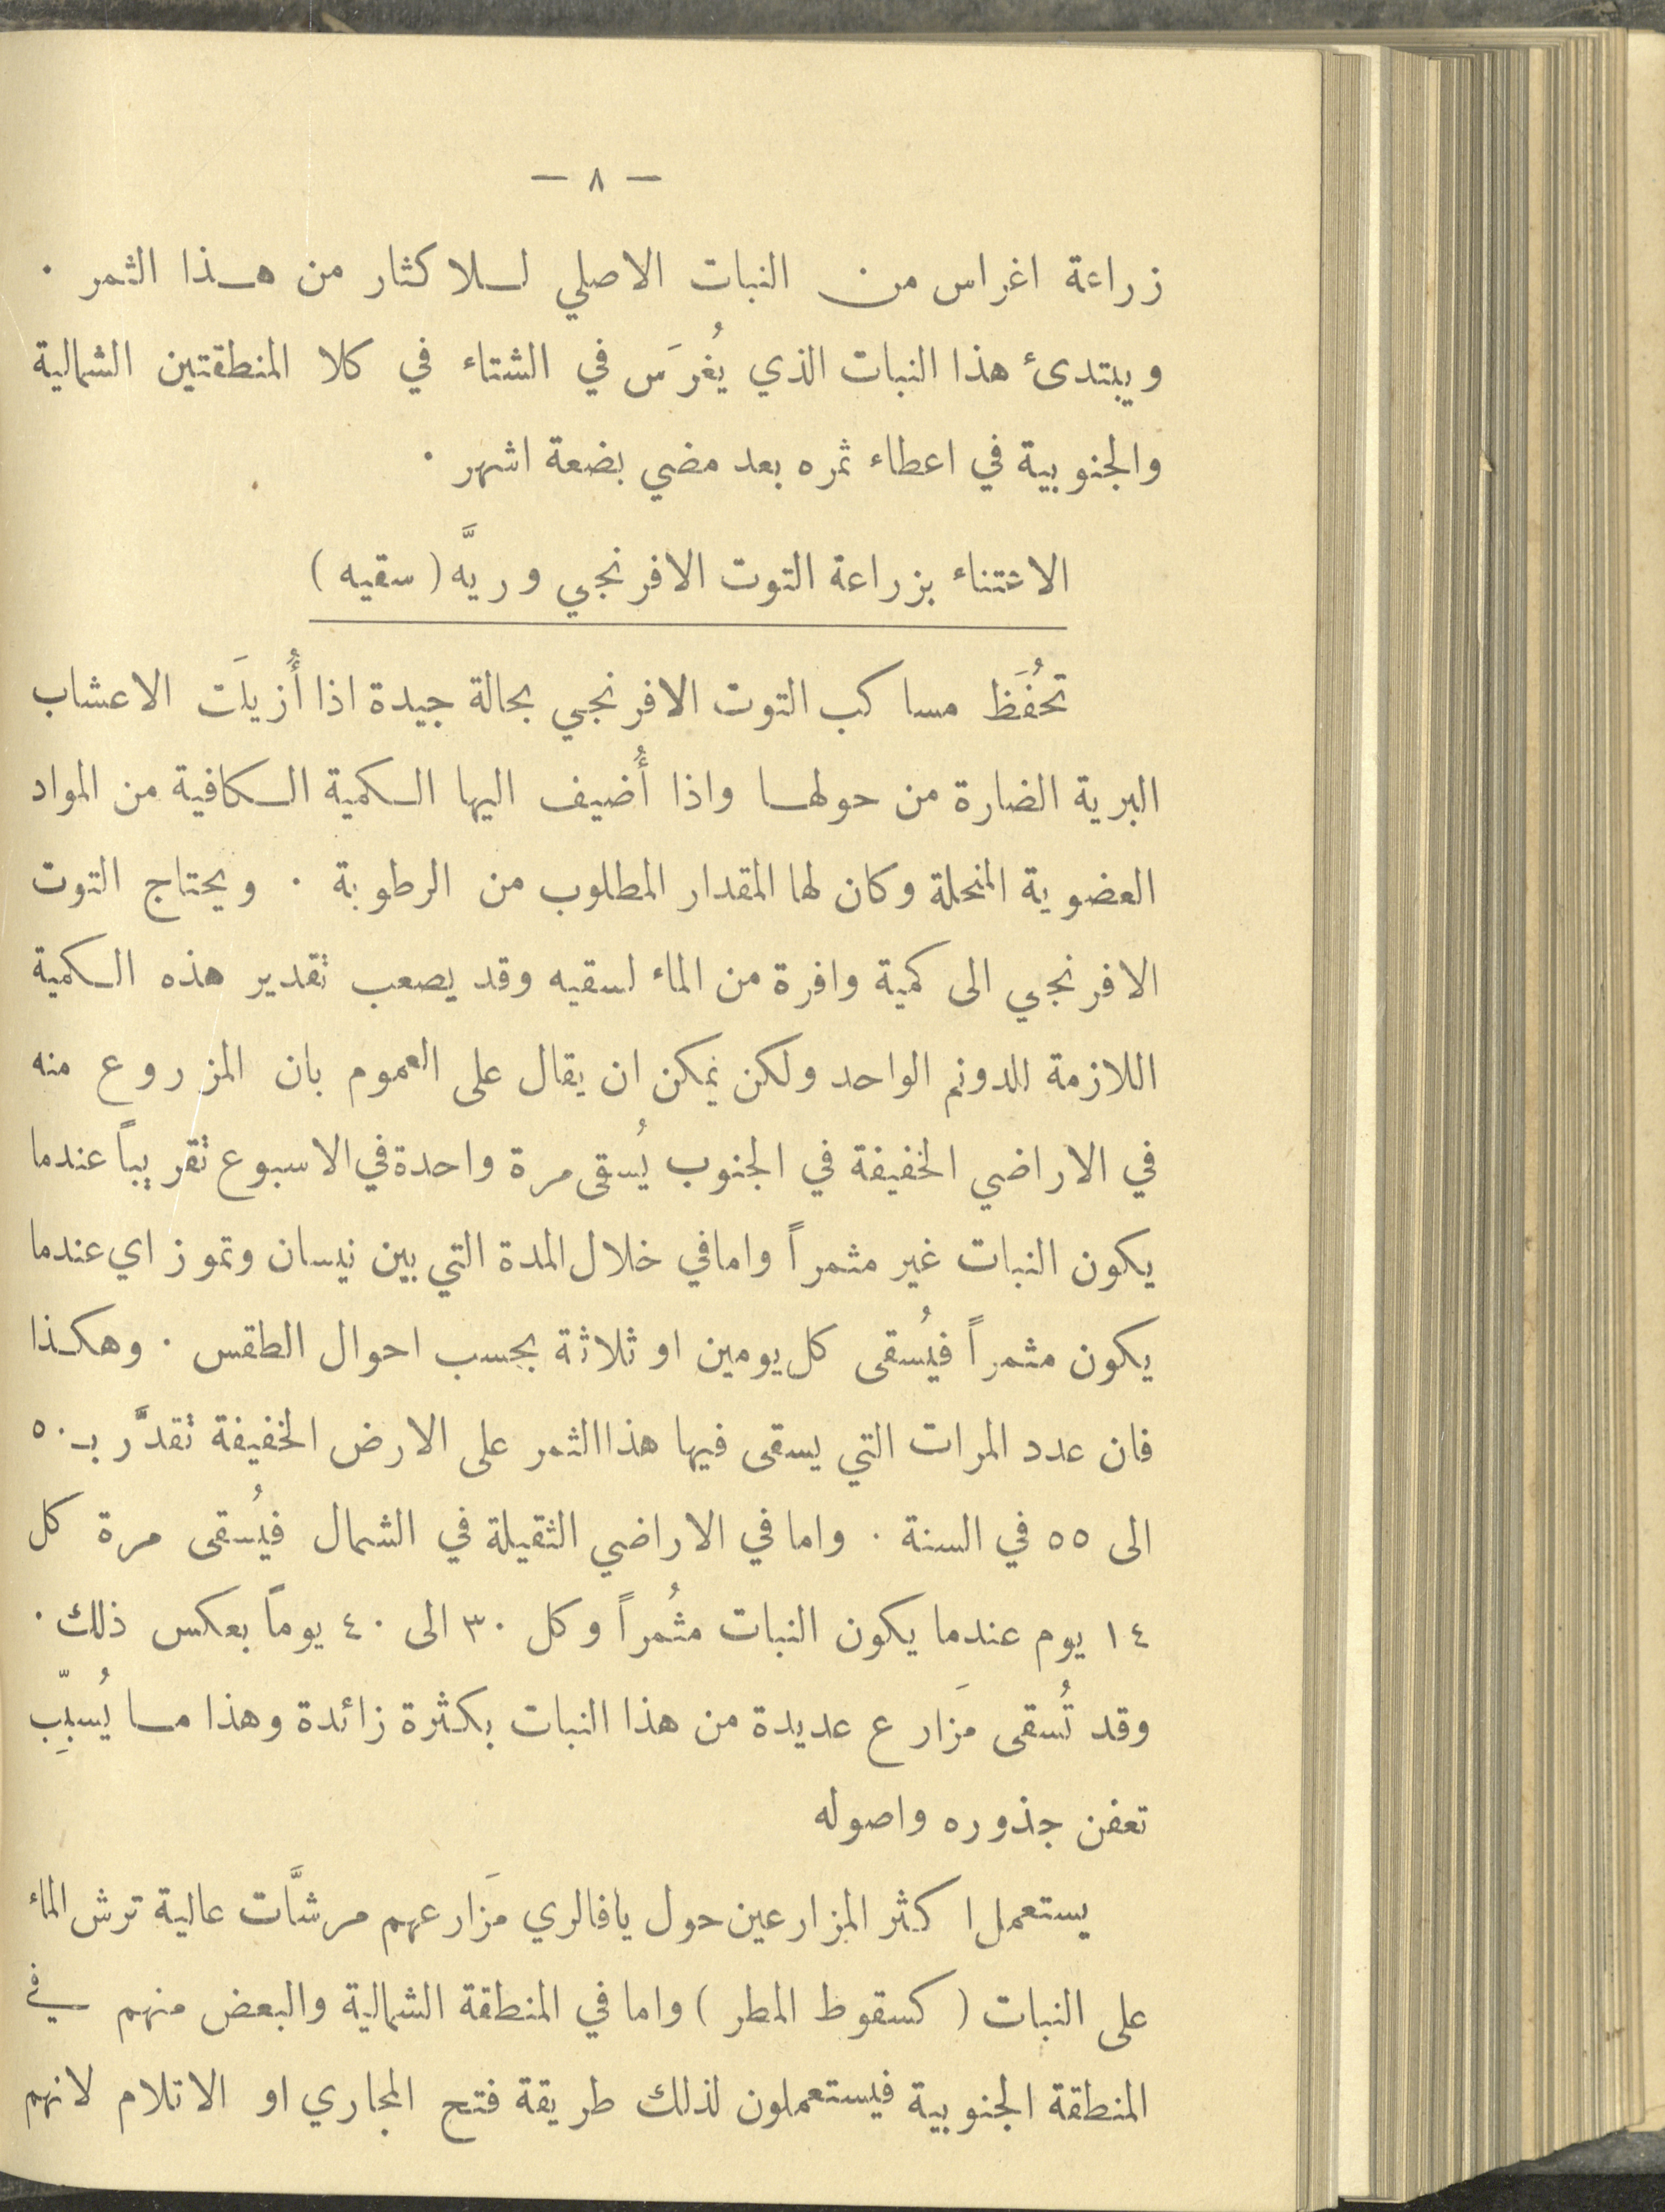 — ٨ —
زراعة اغراس من النبات الاصلي للاكثار من هذا الثمر ·
ويبتدئ هذا النبات الذي يُغرَس في الشتاء في كلا المنطقتين الشمالية
والجنوبية في اعطاء ثمره بعد مضي بضعة اشهر ·
الاعتناء بزراعة التوت الافرنجي وريَّه (سقيه)
تحُفَظ مساكب التوت الافرنجي بحالة جيدة اذا أُزيلَت الاعشاب
البرية الضارة من حولها واذا أُضيف اليها الكمية الكافية من المواد
العضوية المنحلة وكان لها المقدار المطلوب من الرطوبة · ويحتاج التوت
الافرنجي الى كمية وافرة من الماء لسقيه وقد يصعب تقدير هذه الكمية
اللازمة للدونم الواحد ولكن يمكن ان يقال على العموم بان المزروع منه
في الاراضي الخفيفة في الجنوب يُسقى مرة واحدة في الاسبوع تقريباً عندما
يكون النبات غير مثمراً واما في خلال المدة التي بين نيسان وتموز اي عندما
يكون مثمراً فيُسقى كل يومين او ثلاثة بحسب احوال الطقس · وهكذا
فان عدد المرات التي يسقى فيها هذا الثمر على الارض الخفيفة تقدَّر بـ ٥٠
الى ٥٥ في السنة · واما في الاراضي الثقيلة في الشمال فيُسقى مرة كل
١٤ يوم عندما يكون النبات مثُمراً وكل ٣٠ الى ٤٠ يوماً بعكس ذلك ·
وقد تُسقى مَزارع عديدة من هذا النبات بكثرة زائدة وهذا ما يُسبِّب
تعفن جذوره واصوله
يستعمل اكثر المزارعين حول يافا لري مَزارعهم مرشَّات عالية ترش الماء
على النبات (كسقوط المطر) واما في المنطقة الشمالية والبعض منهم في
المنطقة الجنوبية فيستعملون لذلك طريقة فتح المجاري او الاتلام لانهم